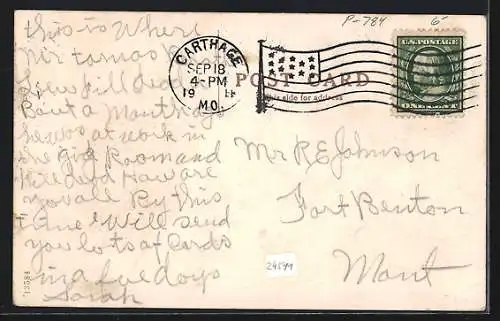 P-784 6-
this is Where
Mr tomas
CARTHAGE
SEP 18
4-PM
19
MO.
U.S. POSTAGE
POST CARD
This side for address
a Month ago
he was at work in
the Room and
Kill dead How are
you all By this
time I Will send
you lots of Cards
in a few days
Sarah
Mr R E Johnson
Fort Benton
Mont
13584